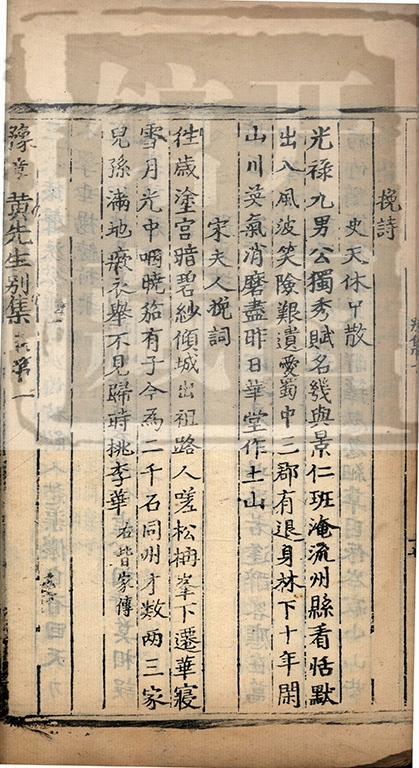 挽詩
史天休中散
光祿九男公獨秀賦名幾與景仁班淹流州縣看恬默
出入風波笑險艱遺愛蜀中三郡有退身林下十年閑
山川英氣消磨盡昨日華堂作土山
宋夫人挽詞
往歲塗宮暗碧紗傾城出祖路人嗟松楸峯下遷華寢
雪月光中咽曉笳有子今為二千石同州才數兩三家
兒孫滿地廞衣舉不見歸時桃李華右皆家傳
豫章黃先生別集卷第一